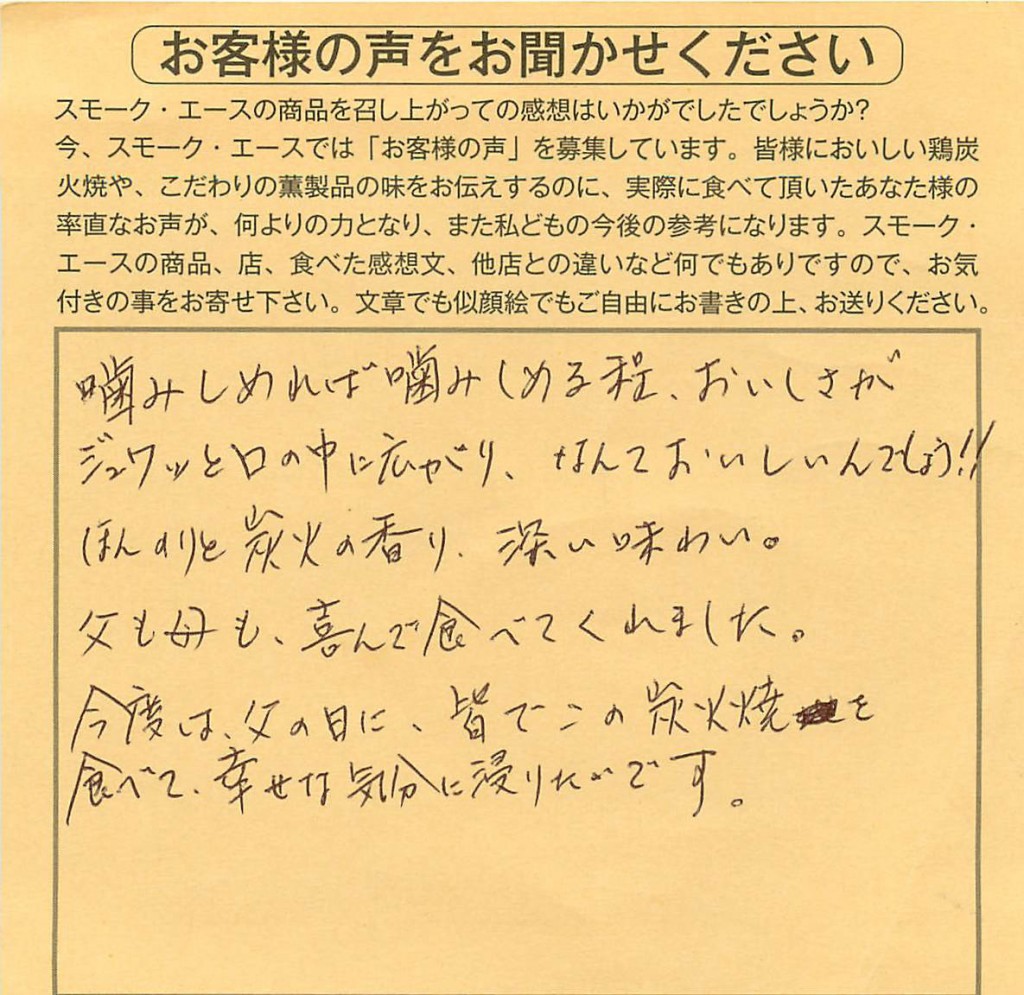 お客様の声をお聞かせください
スモーク・エースの商品を召し上がっての感想はいかがでしたでしょうか?
今、スモーク・エースでは「お客様の声」を募集しています。皆様においしい鶏炭
火焼や、こだわりの薫製品の味をお伝えするのに、実際に食べて頂いたあなた様の
率直なお声が、何よりの力となり、また私どもの今後の参考になります。スモーク・
エースの商品、店、食べた感想文、他店との違いなど何でもありですので、お気
付きの事をお寄せ下さい。文章でも似顔絵でもご自由にお書きの上、お送りください。
噛みしめれば噛みしめる程、おいしさが
ジュワッと口の中に広がり、なんておいしいんでしょう!!
ほんのりと炭火の香り、深い味わい。
父も母も、喜んで食べてくれました。
今度は、父の日に、皆でこの炭火焼を
食べて、幸せな気分に浸りたいです。